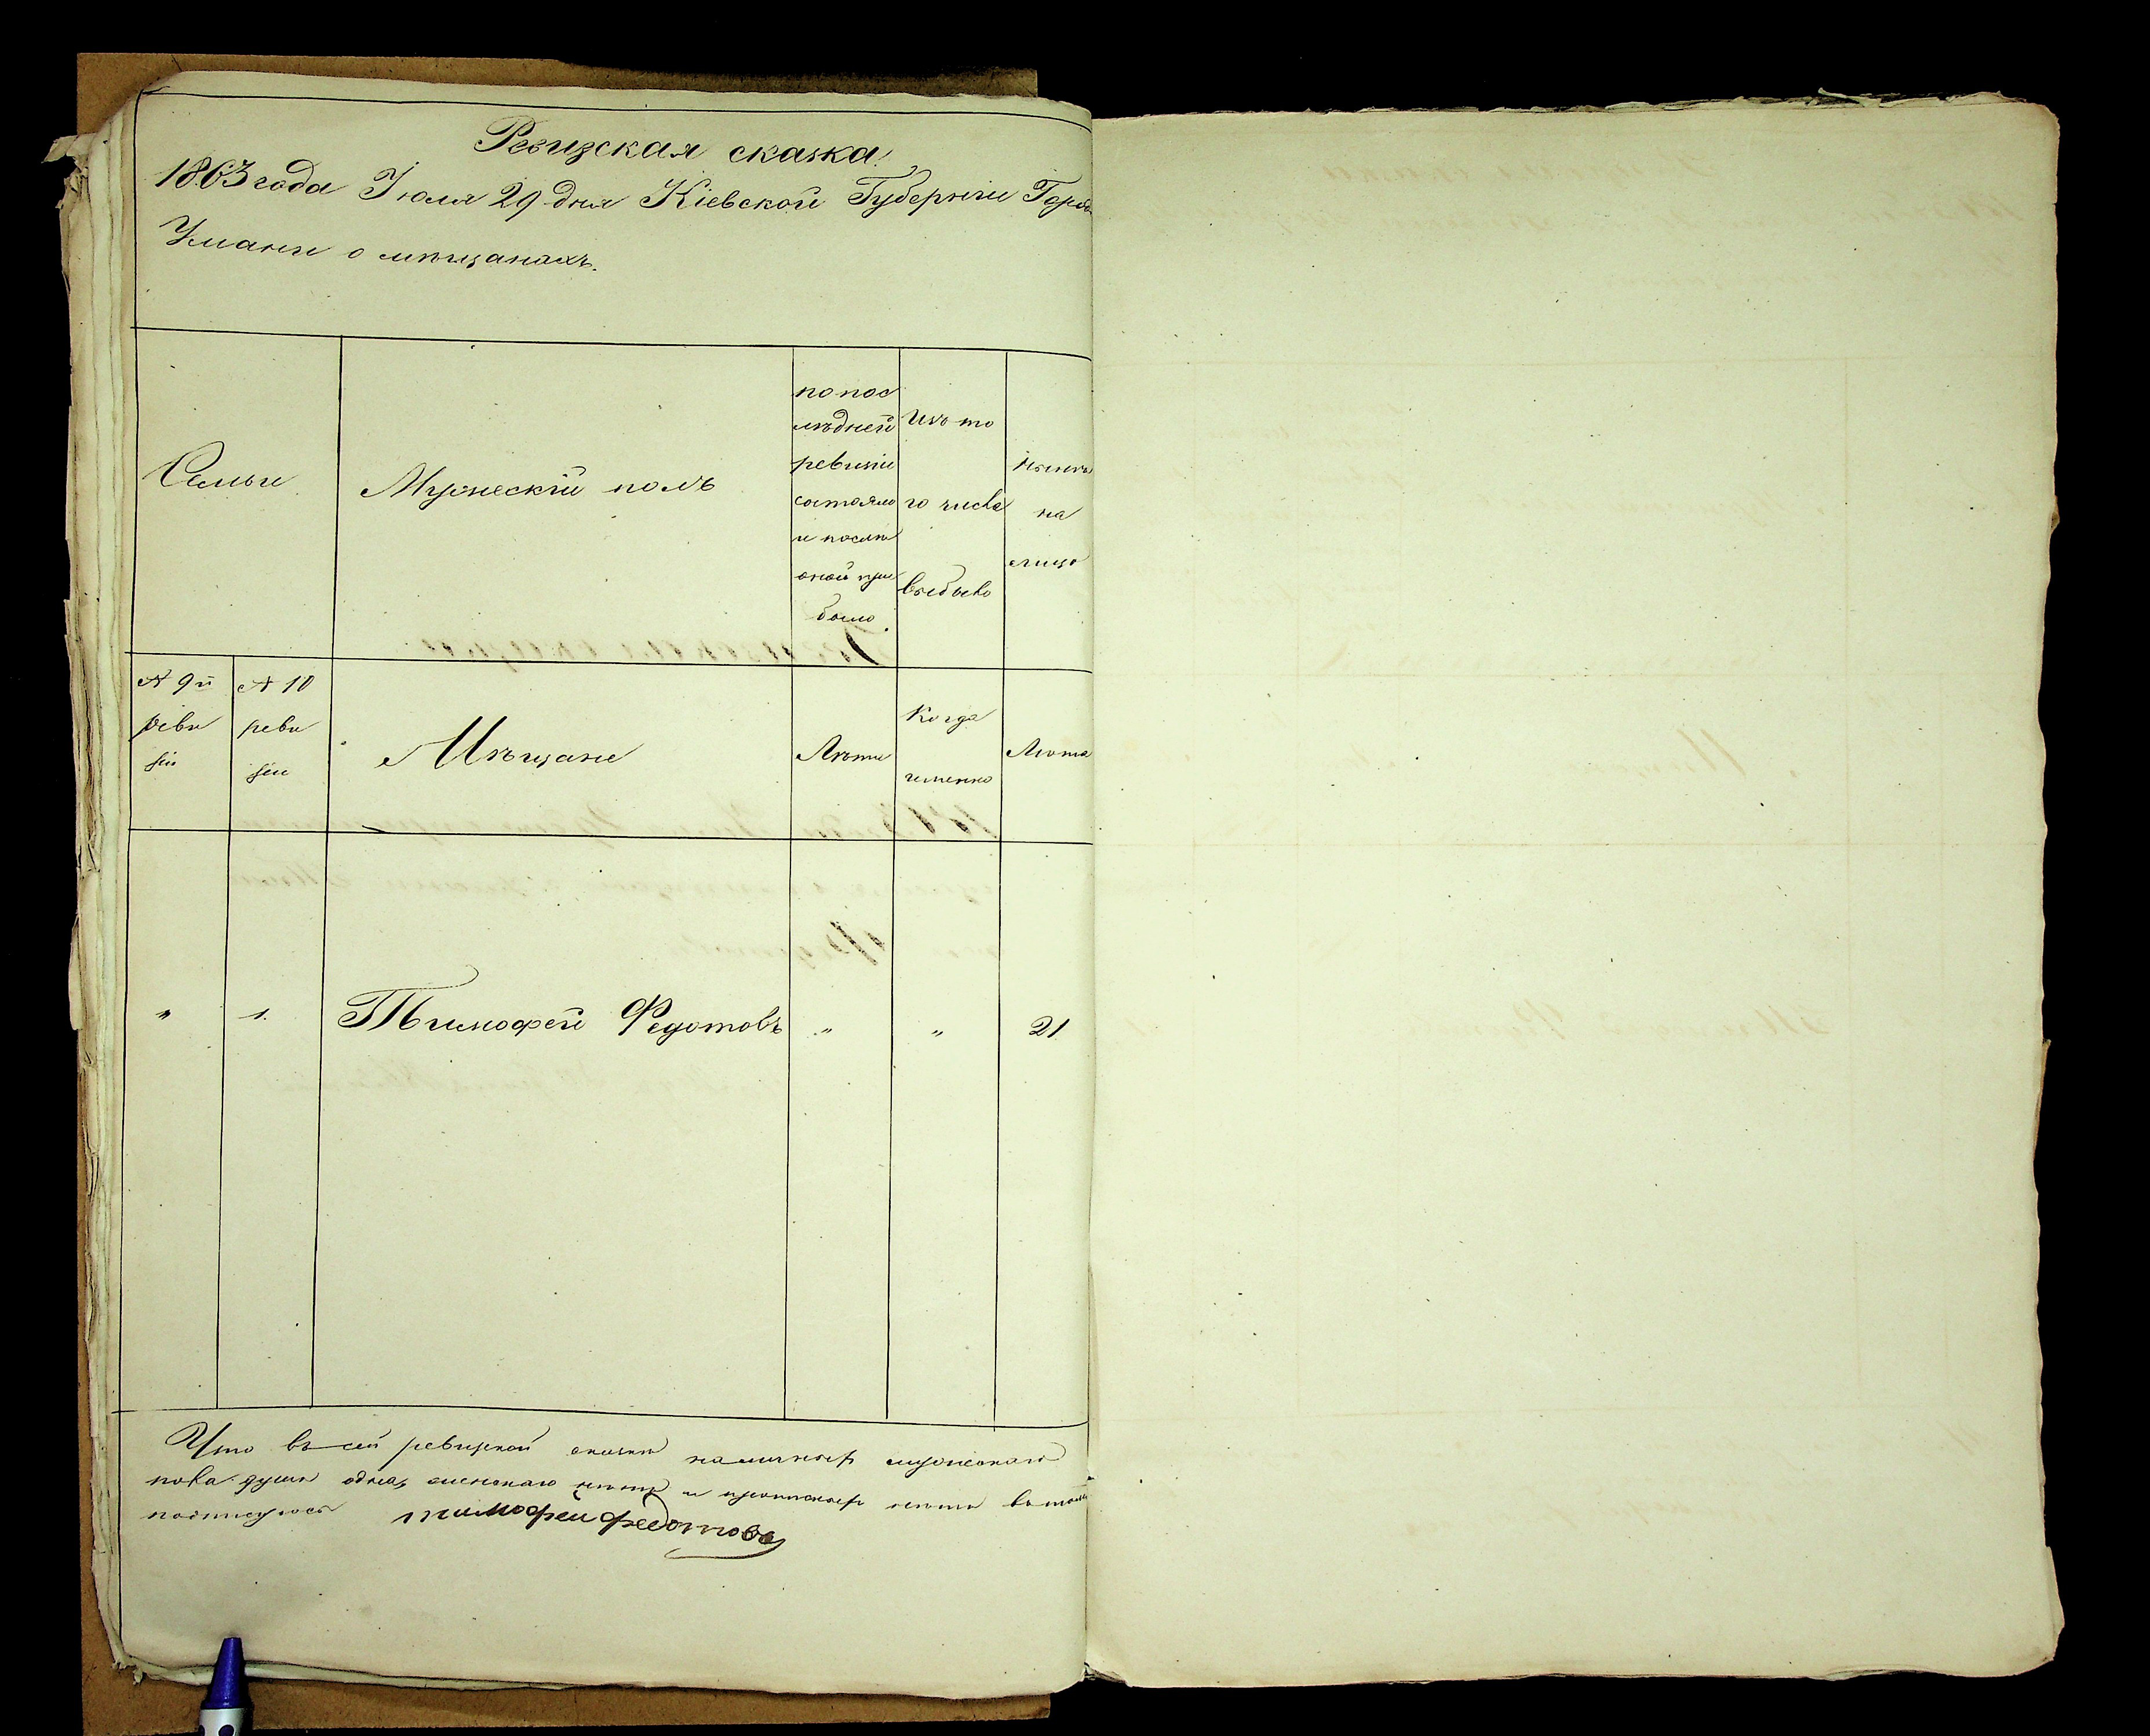 Ревизская сказка
1863 года Іюля 29 дня Кіевской Губерніи Города
Умани о мѣщанахъ.
Семьи
Мужескій полъ
по пос
лѣдней
ревизіи
состояло
и послѣ
оной при
было
Изъ то
го числа
выбыло
Нынѣ
на
лицо
№ 9й
реви
зіи
№ 10
реви
зіи
Мѣщане
Лѣта
Когда
именно
Лѣта
" 1. Тимофей Федотовъ " " 21
Что въ сей ревизской сказкѣ наличныхъ мужескаго
пола душа одна, женскаго нѣтъ и прописныхъ нѣтъ въ томъ
подписуюсь Тимофей Федотовъ